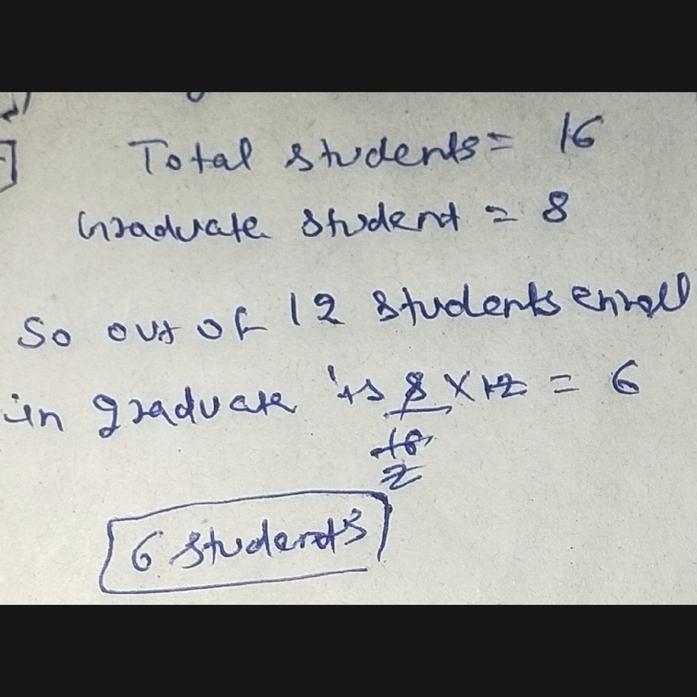 Total students = 16
Graduate student = 8
So out of 12 students enroll
in graduate is 8 × 12 = 6
16
2
6 students